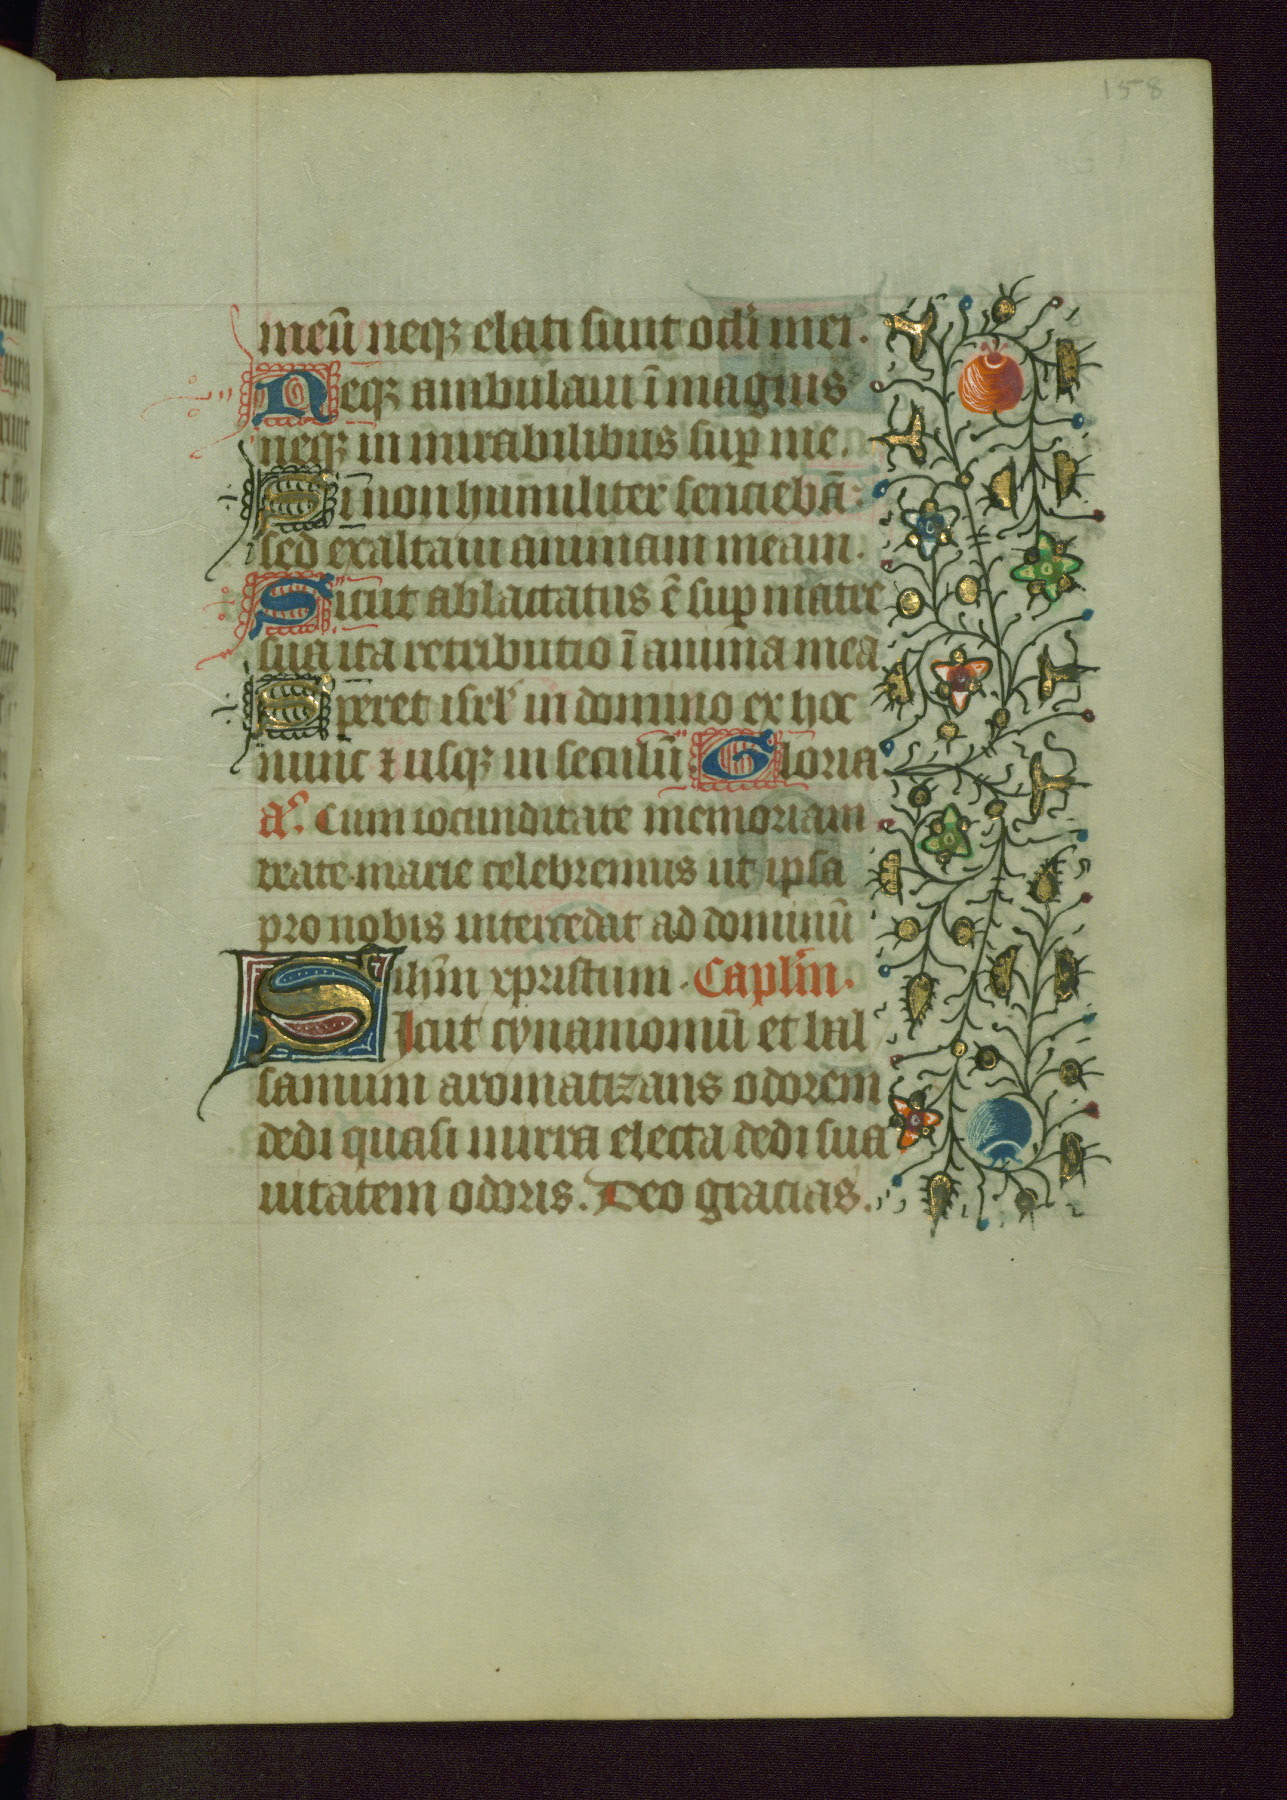 158
meū neqꝫ elati sunt oculi mei.
Neqꝫ ambulaui ī magnis
neqꝫ in mirabilibus suꝑ me.
Si non humiliter senciebā:
sed exaltaui animam meam.
Sicut ablactatus ē suꝑ matre
sua ita retributio ī anima mea
Speret isrl' in domino ex hoc
nunc ⁊ usqꝫ in seculū. Gloria
Aᵃ. Cum iocunditate memoriam
beate marie celebremus ut ipsa
pro nobis intercedat ad dominū
ihm̄ xpristum. Caplm̄.
Sicut cynamomū et bal
samum aromatizans odorem
dedi quasi mirra electa dedi sua
uitatem odoris. Deo gracias.